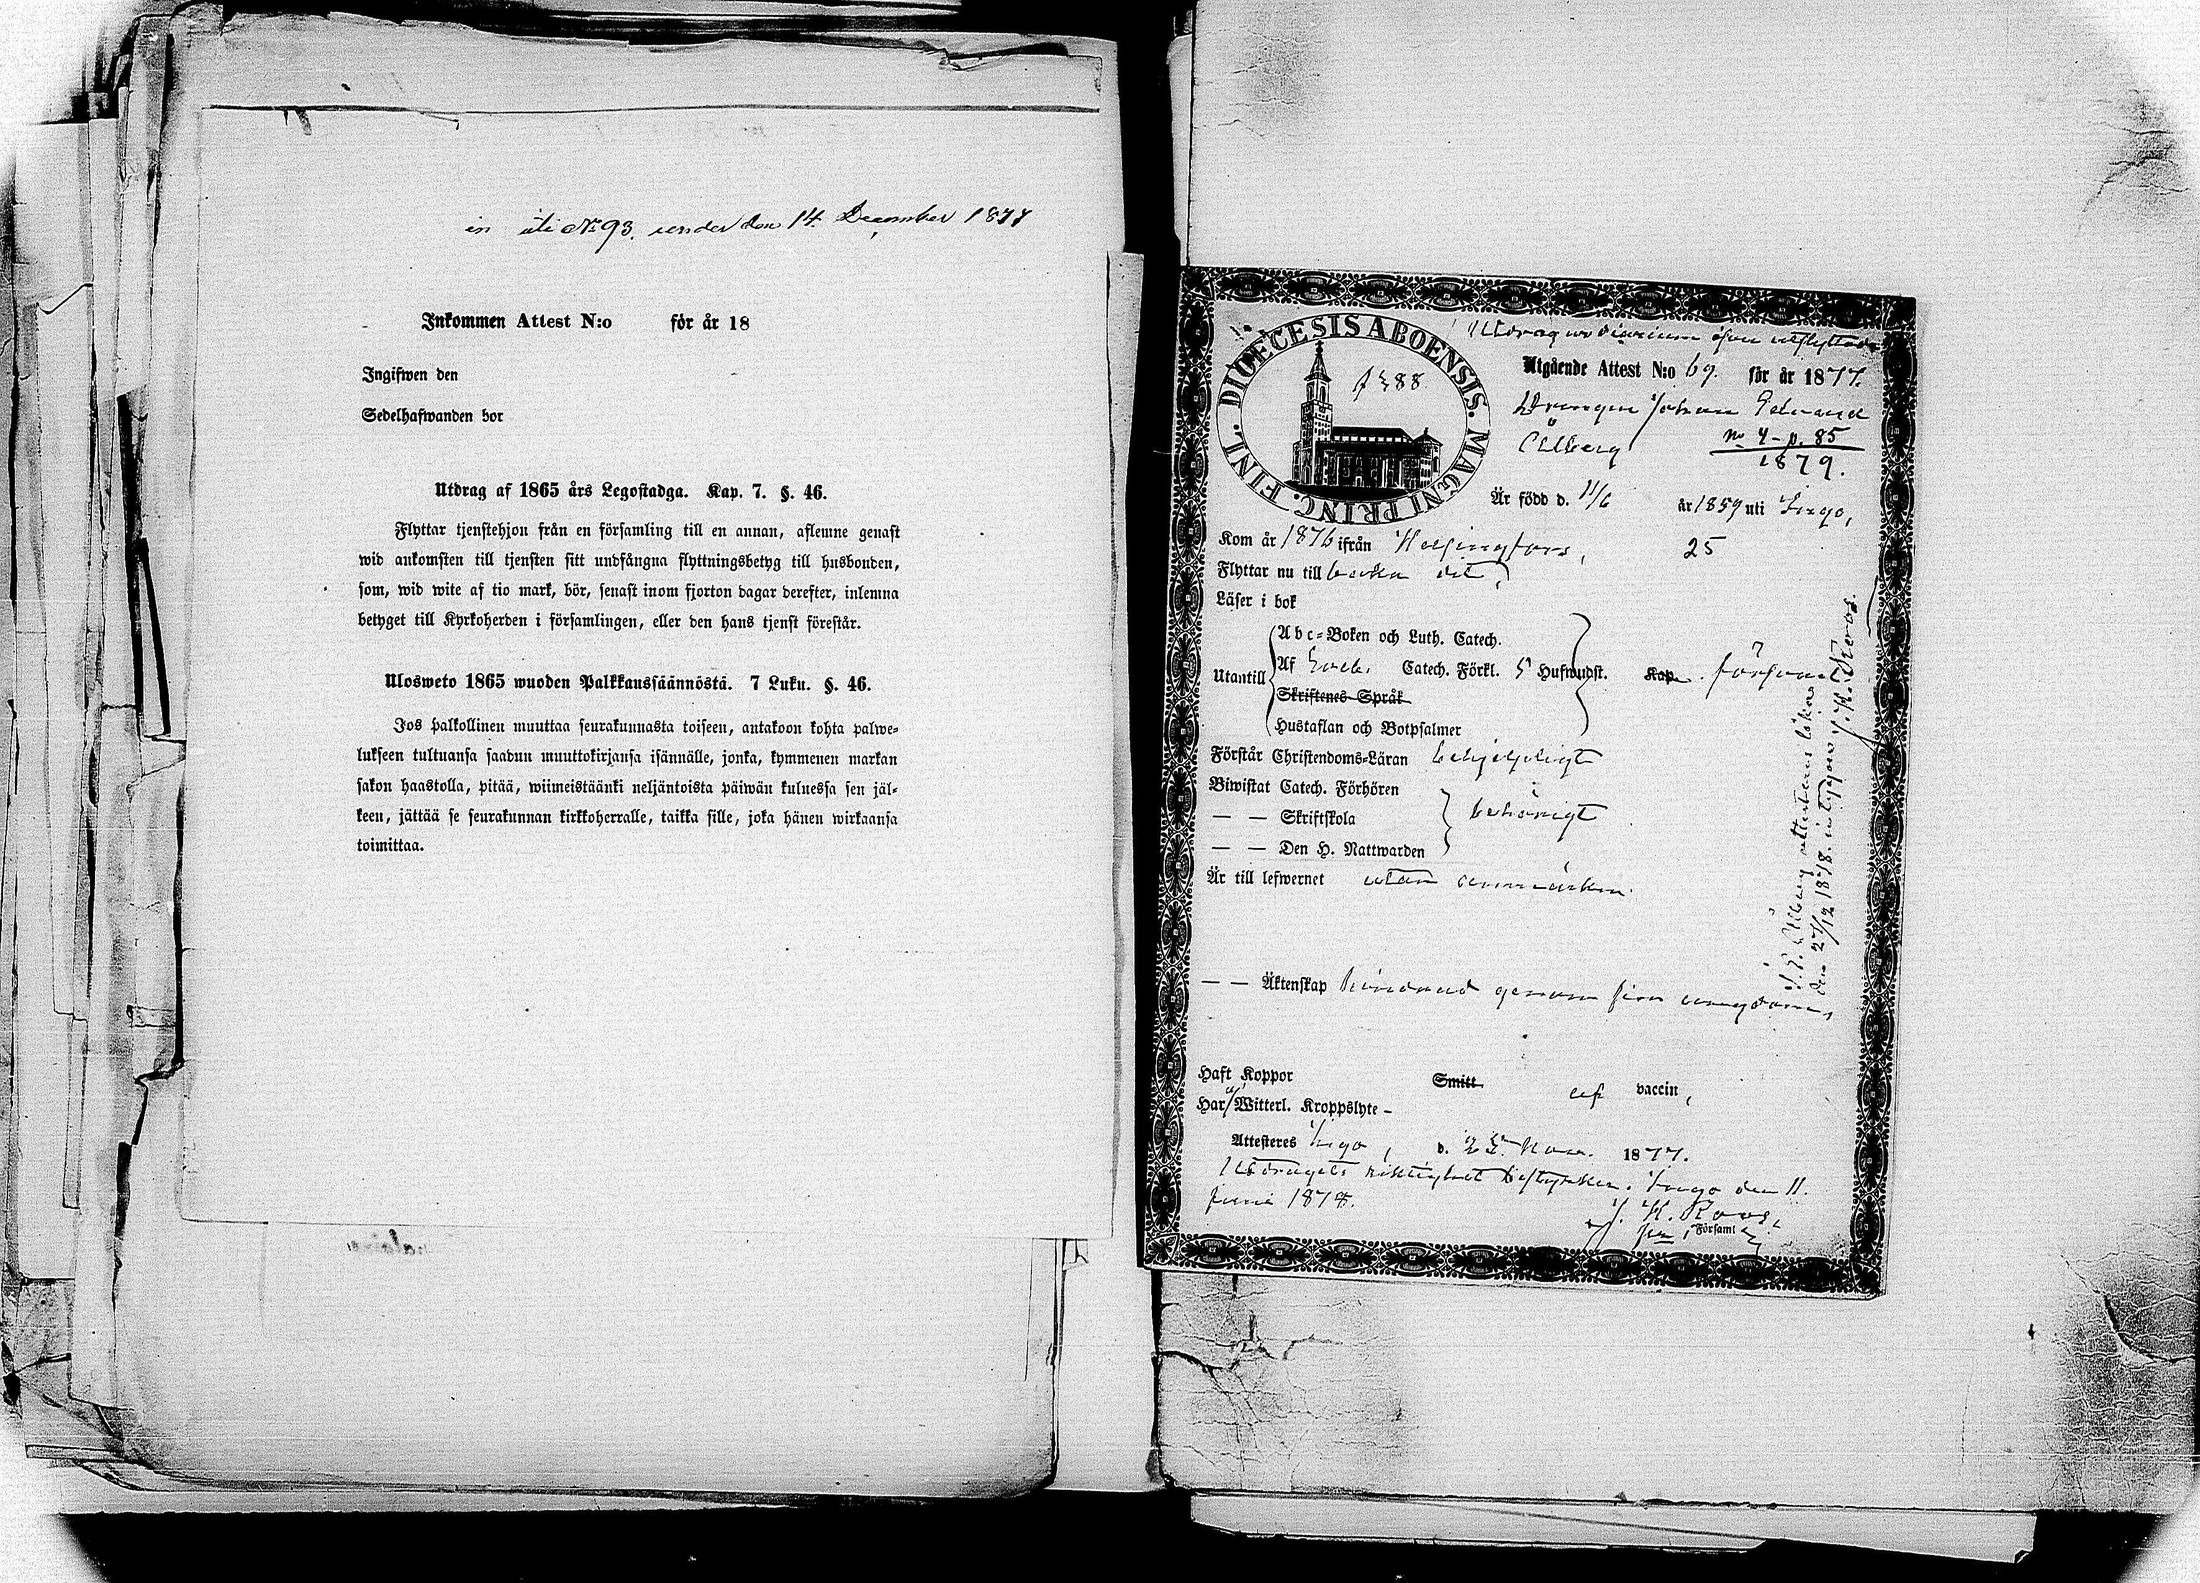 in uti No 93. under den 14. December 1877
Inkommen Attest N:o för år 18
Ingifwen den
Sedelhafwanden bor
Utdrag af 1865 års Legostadga. Kap. 7. §. 46.
Flyttar tjenstehjon från en församling till en annan, aflemne genast
wid ankomsten till tjensten sitt undfångna flyttningsbetyg till husbonden,
som, wid wite af tio mark, bör, senast inom fjorton dagar derefter, inlemna
betyget till Kyrkoherden i församlingen, eller den hans tjenst förestår.
Uloswetо 1865 wuoden Palkkaussäännöstä. 7 Luku. §. 46.
Jos palkollinen muuttaa seurakunnasta toiseen, antakoon kohta palwe-
lukseen tultuansa saadun muuttokirjansa isännälle, jonka, kymmenen markan
sakon haastolla, pitää, wiimeistäänki neljäntoista päiwän kuluessa sen jäl-
keen, jättää se seurakunnan kirkkoherralle, taikka sille, joka hänen wirkaansa
toimittaa.
DIOECESIS ABOENSIS. MAGNI PRINC. FINL.
Utdrag ur diarium öfver utflyttade
Utgående Attest N:o 69. för år 1877.
Drengen Johan Edvard
Öhlberg
no 4 - p. 85
1879.
Är född d. 11/6 år 1859 uti Ingo,
Kom år 1876 ifrån Helsingfors, 25
Flyttar nu till baka dit,
Läser i bok
Abc-Boken och Luth. Catech.
Utantill Af Catech. Förkl. 5 Hufwudst. Kap. försvar
Skriftenes Språk
Hustaflan och Botpsalmer
Förstår Christendoms-Läran behjelpligt
Biwistat Catech. Förhören
— — Skriftskola behörigt
— — Den H. Nattwarden
Är till lefwernet utan anmärkn.
— — Äktenskap hindrad genom sin ungdom,
Haft Koppor Smitt ej vaccin,
Har ej Witterl. Kroppslyte -
Attesteres Ingo, d. 25 Nov. 1877.
Utdragets riktighet bestyrker. Ingo den 11.
Juni 1878.
J. H. Roos,
Församl
den 27/12 1878. intygar J. H. Roos.